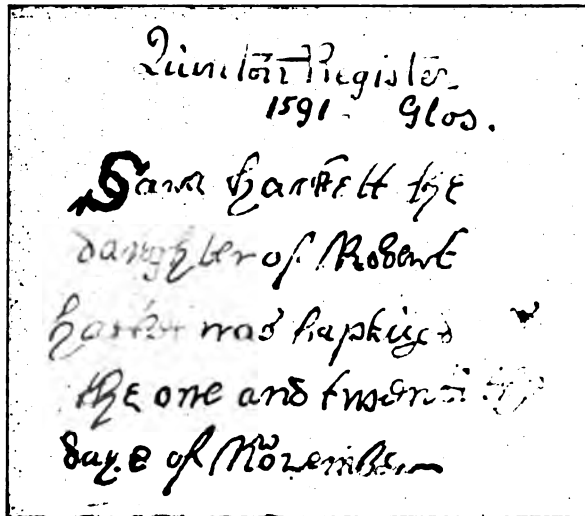 Quinton Register
1591. Glos.
Sara hackett the
daughter of Robert
was baptized
the one and twentith
daye of November